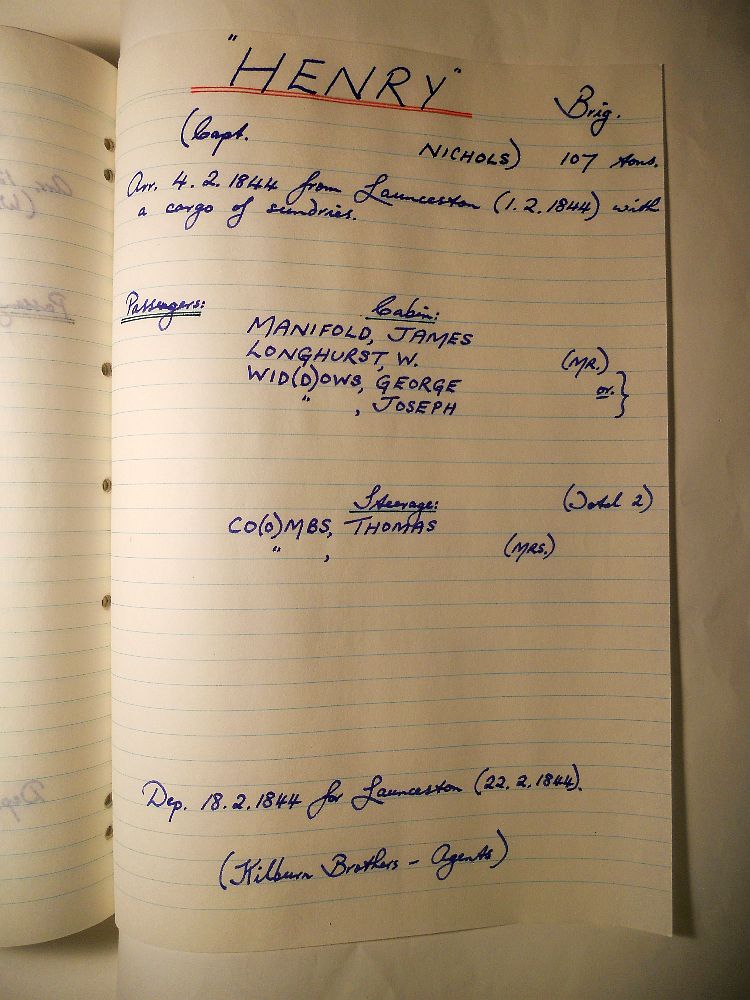 "HENRY"
Brig.
(Capt. NICHOLS) 107 tons.
Arr. 4.2.1844 from Launceston (1.2.1844) with
a cargo of sundries.
Passengers: Cabin:
MANIFOLD, JAMES
LONGHURST, W. (MR.)
WID(D)OWS, GEORGE or. }
" , JOSEPH
Steerage: (Total 2)
CO(O)MBS, THOMAS
" , (MRS.)
Dep. 18.2.1844 for Launceston (22.2.1844).
(Kilburn Brothers - Agents)